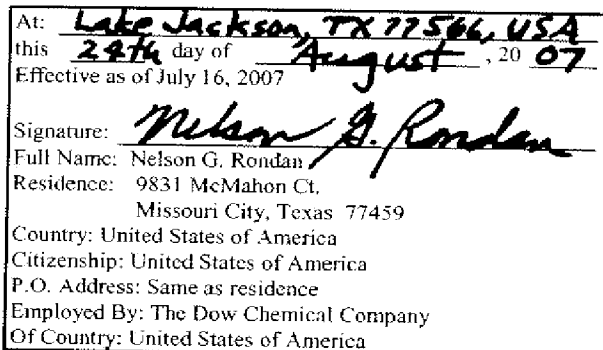 At: Lake Jackson, TX 77566, USA
this 24th day of August, 20 07
Effective as of July 16, 2007
Signature: Nelson G. Rondan
Full Name: Nelson G. Rondan
Residence: 9831 McMahon Ct,
Missouri City, Texas 77459
Country: United States of America
Citizenship: United States of America
P.O. Address: Same as residence
Employed By: The Dow Chemical Company
Of Country: United States of America